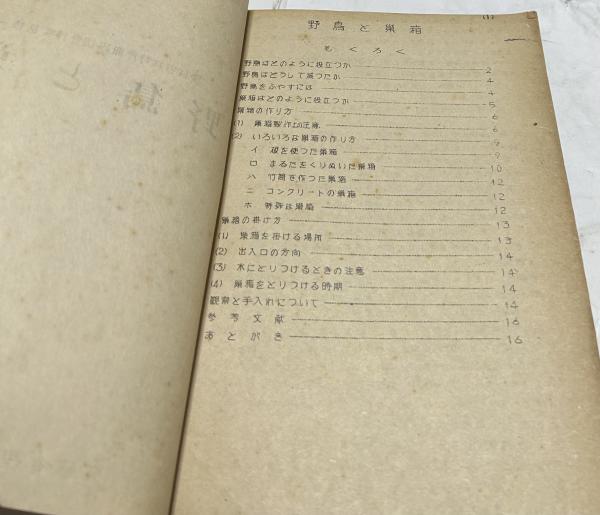 (1)
野鳥と巣箱
もくろく
野鳥はどのように役立つか 2
野鳥はどうして減つたか 4
野鳥をふやすには 4
巣箱はどのように役立つか 5
巣箱の作り方 6
(1) 巣箱製作上の注意 6
(2) いろいろな巣箱の作り方 9
イ 板を使つた巣箱 9
ロ まるたをくりぬいた巣箱 10
ハ 竹筒で作つた巣箱 12
ニ コンクリートの巣箱 12
ホ 特殊な巣箱 12
巣箱の掛け方 13
(1) 巣箱を掛ける場所 13
(2) 出入口の方向 14
(3) 木にとりつけるときの注意 14
(4) 巣箱をとりつける時期 14
観察と手入れについて 14
参考文献 16
あとがき 16